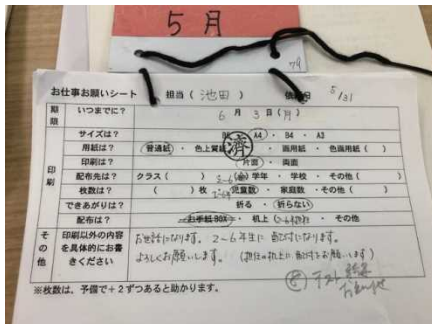 5月
79
お仕事お願いシート 担当（池田） 依頼日 5/31
期限 いつまでに？ 6月3日（月）
印刷 サイズは？ A4・B4・A3
済
用紙は？ 普通紙・色上質紙・画用紙・色画用紙（ ）
印刷は？ 片面・両面
配布先は？ クラス（ ） 2-6 学年・学校・その他（ ）
枚数は？ （ ）枚・児童数・家庭数・その他（ ）
できあがりは？ 折る・折らない
配布は？ お手紙BOX・机上・その他
その他 印刷以外の内容を具体的にお書きください
お世話になります。2～6年生に配付になります。
よろしくお願いします。（担任の机上に配付をお願いします）
テスト
※枚数は、予備で＋2ずつあると助かります。